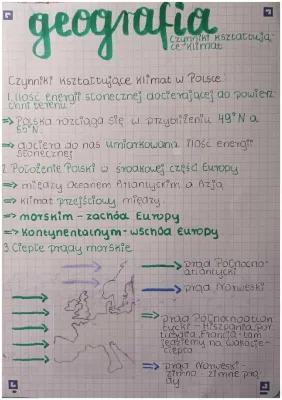 geografia
czynniki kształtują-
ce klimat
Czynniki kształtujące klimat w Polsce:
1. Ilość energii słonecznej docierającej do powierz
chni terenu
⇒ Polska rozciąga się w przybliżeniu 49°N a
55°N.
⇒ dociera do nas umiarkowana ilość energii
słonecznej
2. Położenie Polski w środkowej części Europy
⇒ między Oceanem Atlantyckim a Azją
⇒ klimat przejściowy między:
⇒ morskim - zachód Europy
⇒ kontynentalnym - wschód Europy
3. Ciepłe prądy morskie
→ prąd Północno-
atlantycki
→ prąd Norweski
⇒ prąd Północnoatlan
tycki - Hiszpania, Por
tugalia, Francja - tam
jedziemy na wakacje -
ciepło
⇒ prąd Norweski -
zimno - zimne prą
dy